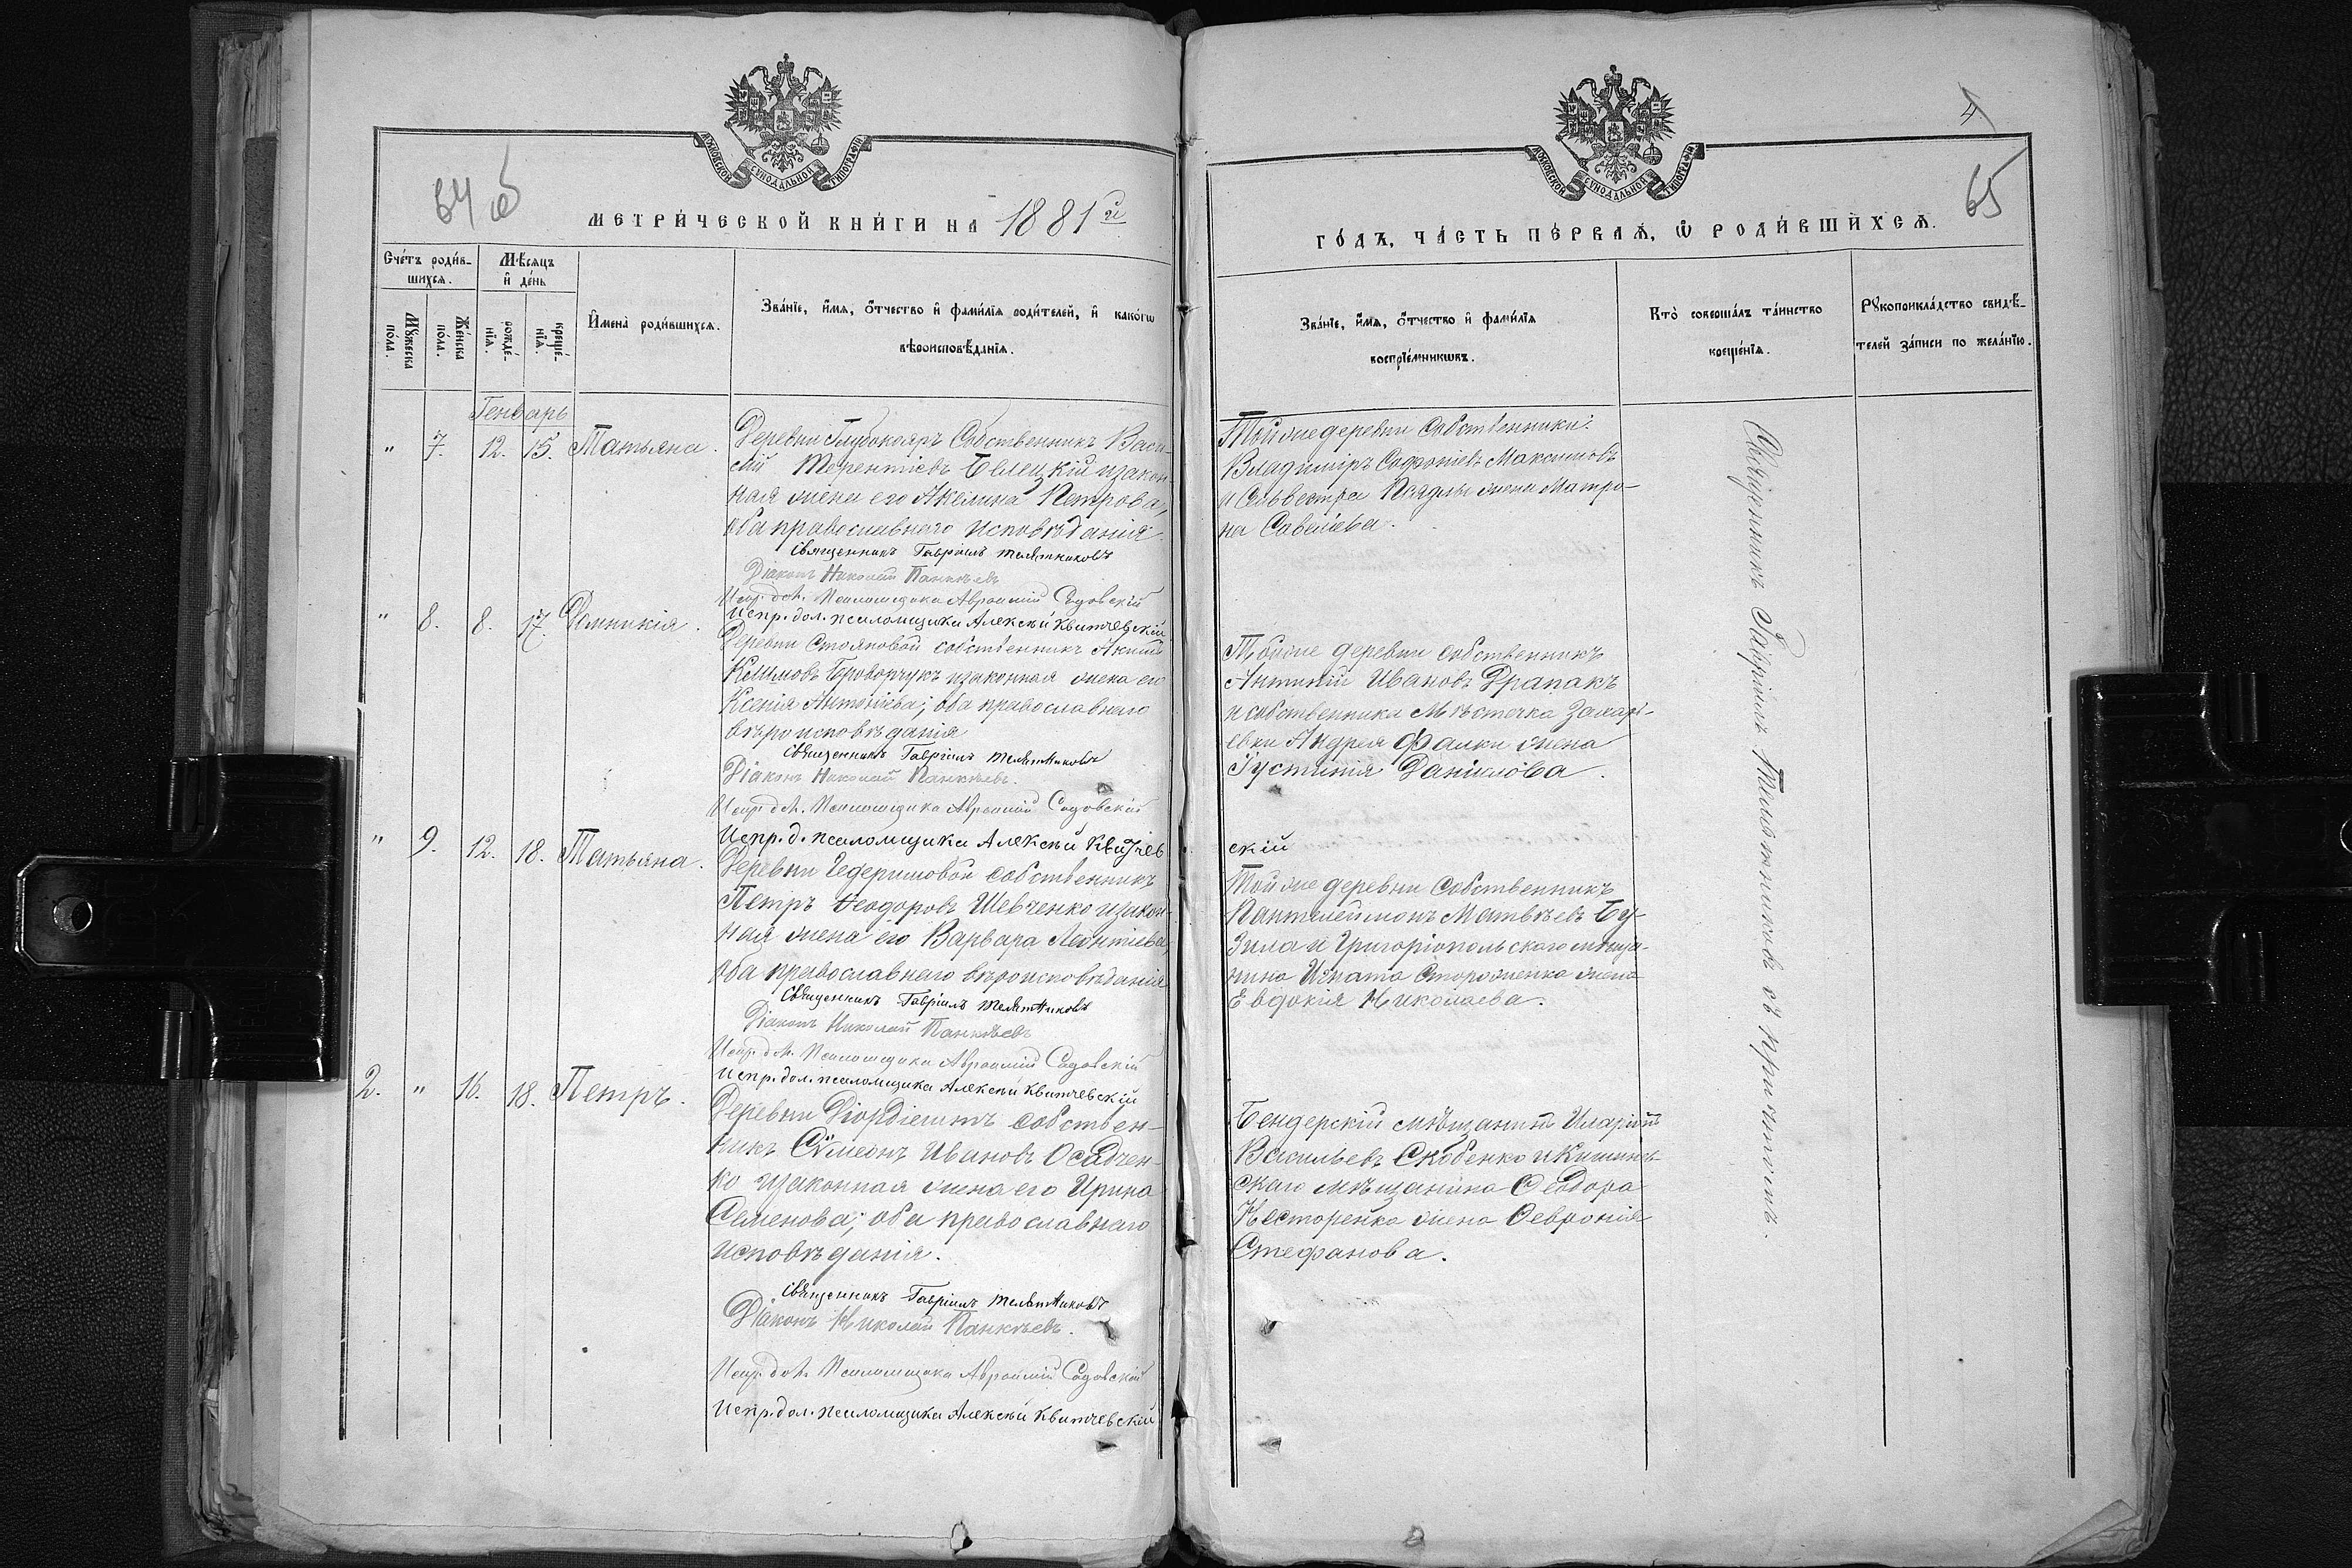 МОСКОВСКОЙ СѴНОДАЛЬНОЙ ТИПОГРАФІИ
64 об
МЕТРИ́ЧЕСКОЙ КНИ́ГИ НА 1881й
Сче́тъ роди́в-
шихсѧ.
Мѣ́сяцъ
и҆ де́нь
Мꙋ́жеска
по́ла.
Же́нска
по́ла.
рожде́-
нїѧ.
креще́-
нїѧ.
И҆мена̀ роди́вшихсѧ.
Зва́нїе, и҆́мѧ, ѻ҆́тчество и҆ фами́лїѧ роди́телей, и҆ како́гѡ
вѣроисповѣ́данїѧ.
Генварь
" 7. 12. 15. Татьяна.
Деревни Глубокояръ Собственникъ Васи-
лій Терентіевъ Белецкій и закон-
ная жена его Акилина Петрова,
оба православнаго исповѣданія.
Священникъ Гавріилъ Телятниковъ
Діаконъ Николай Панкѣевъ
Испр. дол. Псаломщика Авраамій Садовскій
Испр. дол. псаломщика Алексѣй Квитчевскій
" 8. 8. 17. Домникія.
Деревни Стояновой собственникъ
Климовъ и законная жена его
Ксенія Антоніева; оба православнаго
вѣроисповѣданія
Священникъ Гавріилъ Телятниковъ
Діаконъ Николай Панкѣевъ.
Испр. дол. Псаломщика Авраамій Садовскій
Испр. д. псаломщика Алексѣй Квитчев
" 9. 12. 18. Татьяна.
Деревни Чедеримовой собственникъ
Петръ Ѳеодоровъ Шевченко и закон-
ная жена его Варвара Леонтіева,
оба православнаго вѣроисповѣданія
Священникъ Гавріилъ Телятниковъ
Діаконъ Николай Панкѣевъ
Испр. дол. Псаломщика Авраамій Садовскій
Испр. дол. псаломщика Алексѣй Квитчевскій
2. " 16. 18. Петръ.
Деревни собствен-
никъ Сѵмеонъ Ивановъ Осадчен-
ко и законная жена его Ирина
Семенова; оба православнаго
исповѣданія.
Священникъ Гавріилъ Телятниковъ
Діаконъ Николай Панкѣевъ.
Испр. дол. Псаломщика Авраамій Садовскій
Испр. дол. псаломщика Алексѣй Квитчевскій
4
МОСКОВСКОЙ СѴНОДАЛЬНОЙ ТИПОГРАФІИ
65
ГО́ДЪ, ЧА́СТЬ ПЕ́РВАѦ, Ѡ҆ РОДИ́ВШИХСѦ.
Зва́нїе, и҆́мѧ, ѻ҆́тчество и҆ фами́лїѧ
воспрїе́мникѡвъ.
Кто̀ соверша́лъ та́инство
креще́нїѧ.
Рꙋкоприкла́дство свидѣ́-
телей за́писи по жела́нїю.
Тойже деревни Собственники:
Владиміръ Софоніевъ Максимовъ
и Сильвестра жена Матро-
на Савелиева.
Тойже деревни собственникъ
Антипій Ивановъ Драпакъ
и собственника Мѣстечка Захарі-
евки Андрея Фалки жена
Іустинія Данилова.
скій
Тойже деревни Собственникъ
Пантелеймонъ Матвѣевъ Бу-
зила и Григоріопольскаго мѣща-
нина Игната Стороженка жена
Евдокія Николаева.
Бендерскій мѣщанинъ Иларіонъ
Васильевъ Скобенко и Кишинев-
скаго мѣщанина Ѳеодора
Несторенка жена Ѳевронія
Стефанова.
Священникъ Гавріилъ Телятниковъ съ причтомъ.